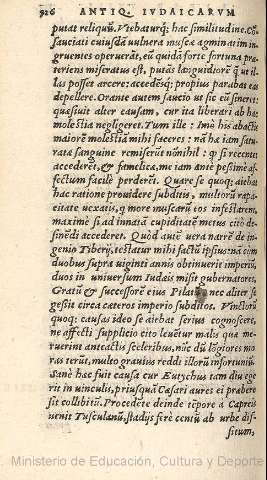 926 ANTIQ. IVDAICARVM
putat reliquū. Vtebaturq́; hac similitudine. Cō-
sauciati cuiusdā vulnera muscæ agminatim in-
gruentes operuerāt, eū quidā forte fortuna præ-
teriens miseratus est, putās languidiorē q̃ ut il-
las posset arcere: accedēsq́; propius parabat eas
depellere. Orante autem saucio ut sic eū sineret:
quæsiuit alter causam, cur ita liberari ab hac
molestia negligeret. Tum ille: Imò his abactis
maiorē molestiā mihi faceres: nā hæ iam satu-
ratæ sanguine remiserūt nōnihil: q̃ si recentes
accederēt, & famelicæ, me iam antè pessimè af-
fectum facilè perderēt. Quare se quoq; aiebat
hac ratione prouidere subditis, multorū rapa-
citate vexatis, q̃ more muscarū eos infestarent,
maximè si ad innatā cupiditatē metus citò de-
sinēdi accederet. Quòd autē uera narrē de in-
genio Tiberij, testatur mihi factū ipsius: nā cùm
duobus supra uiginti annis obtinuerit imperiū,
duos in uniuersum Iudæis misit gubernatores,
Gratū & successorē eius Pilatū nec aliter se
gessit circa cæteros imperio subditos. Vinctorū
quoq; causas ideo se aiebat serius cognoscere,
ne affecti supplicio citò leuetur malis quæ me-
ruerint anteactis sceleribus, nūc dū lōgiores mo-
ras terūt, multo grauius reddi illorū infortuniū.
Sanè hæc fuit causa cur Eutychus tam diu ege-
rit in uinculis, priusquā Cæsari aures ei præbere
sit collibitū. Procedēte deinde tēpore à Capreis
uenit Tusculanū, stadijs ferè centū ab urbe dis-
situm,
Ministerio de Educación, Cultura y Deporte